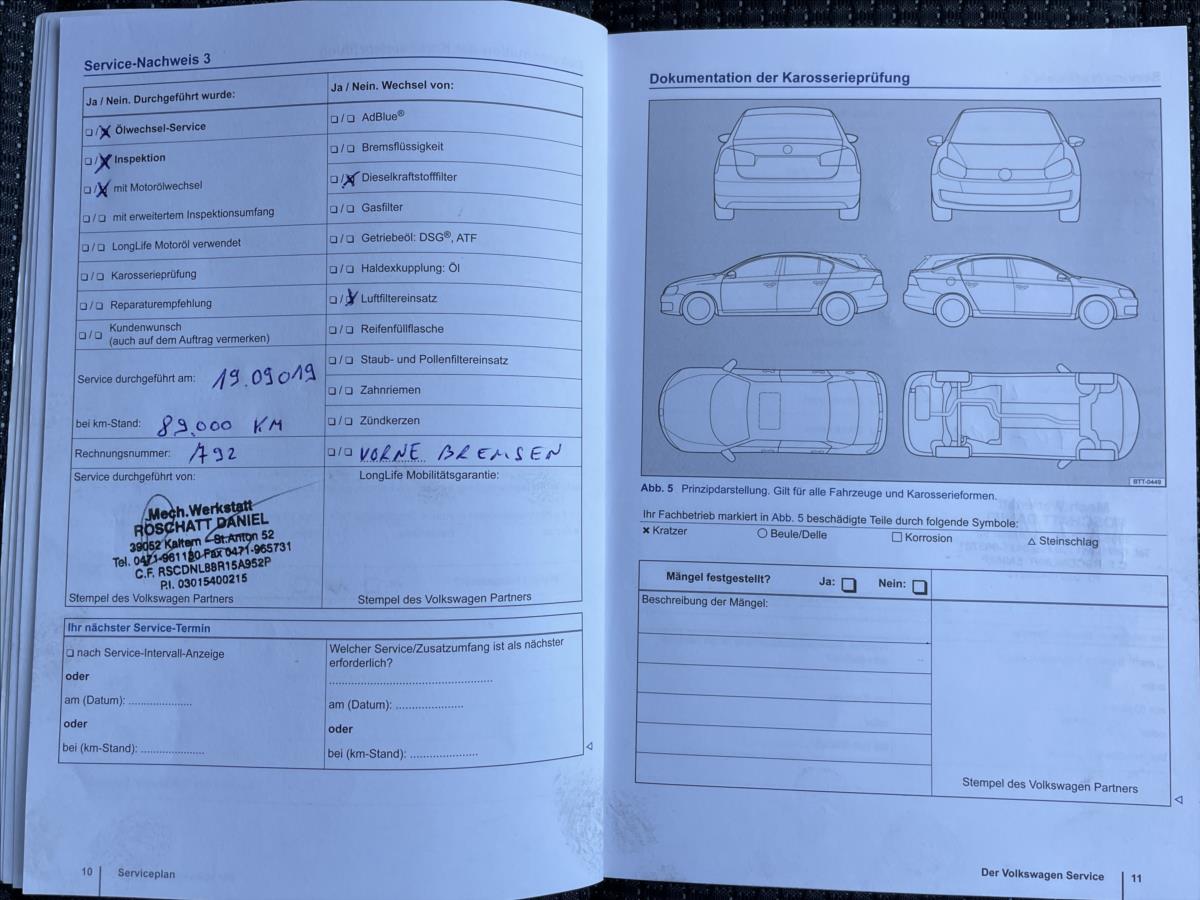 Service-Nachweis 3
Ja / Nein. Durchgeführt wurde:
☐/☒ Ölwechsel-Service
☐/☒ Inspektion
☐/☒ mit Motorölwechsel
☐/☐ mit erweitertem Inspektionsumfang
☐/☐ LongLife Motoröl verwendet
☐/☐ Karosserieprüfung
☐/☐ Reparaturempfehlung
☐/☐ Kundenwunsch
(auch auf dem Auftrag vermerken)
Service durchgeführt am: 19.09019
bei km-Stand: 89.000 KM
Rechnungsnummer: 792
Service durchgeführt von:
Mech.Werkstatt
ROSCHATT DANIEL
39052 Kaltern - St.Anton 52
Tel. 0471-961180 Fax 0471-965731
C.F. RSCDNL88R15A952P
P.I. 03015400215
Stempel des Volkswagen Partners
Ja / Nein. Wechsel von:
☐/☐ AdBlue®
☐/☐ Bremsflüssigkeit
☐/☒ Dieselkraftstofffilter
☐/☐ Gasfilter
☐/☐ Getriebeöl: DSG®, ATF
☐/☐ Haldexkupplung: Öl
☐/☒ Luftfiltereinsatz
☐/☐ Reifenfüllflasche
☐/☐ Staub- und Pollenfiltereinsatz
☐/☐ Zahnriemen
☐/☐ Zündkerzen
☐/☐ VORNE BREMSEN
LongLife Mobilitätsgarantie:
Stempel des Volkswagen Partners
Ihr nächster Service-Termin
☐ nach Service-Intervall-Anzeige
oder
am (Datum): ....................
oder
bei (km-Stand): ....................
Welcher Service/Zusatzumfang ist als nächster
erforderlich?
....................................................
am (Datum): .....................
oder
bei (km-Stand): .....................
10 Serviceplan
Dokumentation der Karosserieprüfung
BTT-0449
Abb. 5 Prinzipdarstellung. Gilt für alle Fahrzeuge und Karosserieformen.
Ihr Fachbetrieb markiert in Abb. 5 beschädigte Teile durch folgende Symbole:
✕ Kratzer ○ Beule/Delle ☐ Korrosion △ Steinschlag
Mängel festgestellt? Ja: ☐ Nein: ☐
Beschreibung der Mängel:
Stempel des Volkswagen Partners
Der Volkswagen Service 11